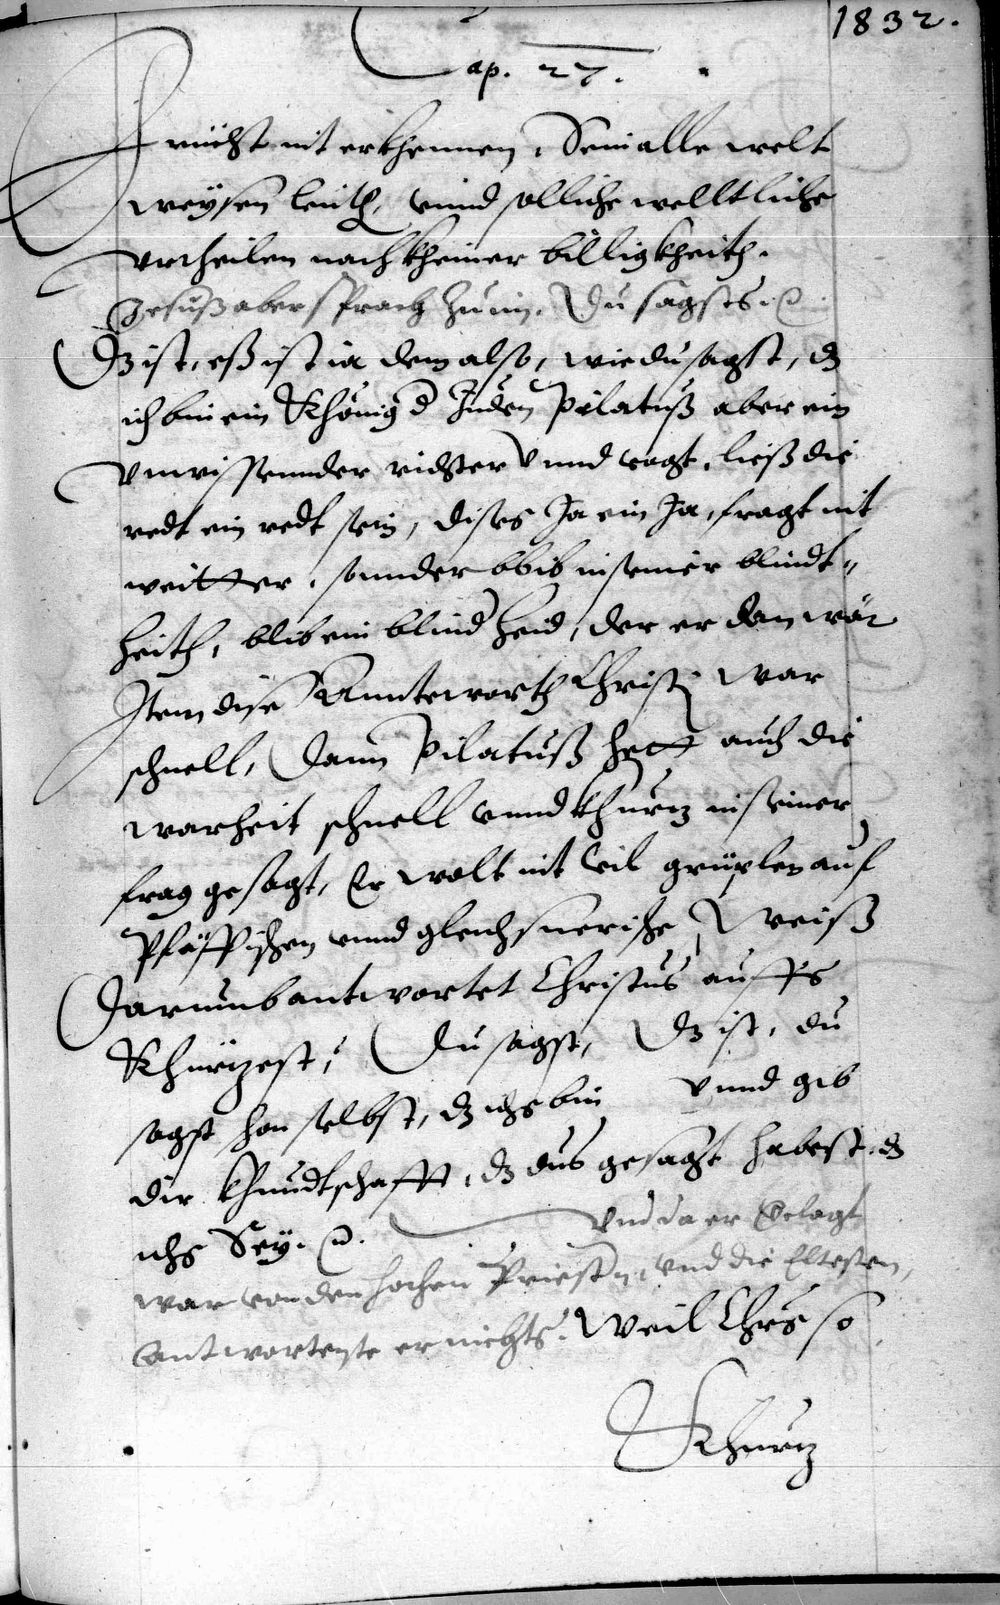 1832.
Cap. 27.
nicht nit erkhennen. Sein alle welt
weysen leuth, vnnd solliche welltliche
vrtheilen nach kheiner billigkheith.
Jesuß aber sprach zu im, Du sagsts. ꝛc.
Dz ist, eß ist ia dem also, wie du sagst, dz
ich bin ein Khönig d Juden Pilatuß aber ein
vnwissennder richter vnnd vogt, ließ die
redt ein redt sein, dises Ja ein Ja, fragt nit
weitter, sonnder blib in seiner blindt-
heith, blib ein blind heid, der er dan war
Item dise Anntwortt Christi war
schnell, Dann Pilatuß hett auch die
warheit schnell vnnd khurz in seiner
frag gesagt, Er wolt nit vil grüplen auf
Pfäffischen vnnd gleichsnerische Weiß
Darumb antwortet Christus auffs
Khürzest, Du sagst, Dz ist, du
sagst hon selbst, dz ichs bin vnnd gib
dir khundtschafft, dz dus gesagt habest, dz
ichs Sey. ꝛc. Vnd da er verlagt
war von den hochen Priestn, vnd die Eltesten,
antwortete er nichts. Weil Chrs so
Khurz